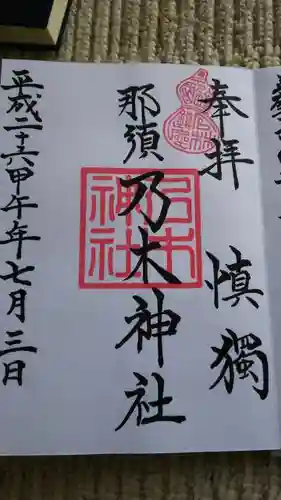 奉拝 慎獨
那須乃木神社
乃木神社
平成二十六甲午年七月三日